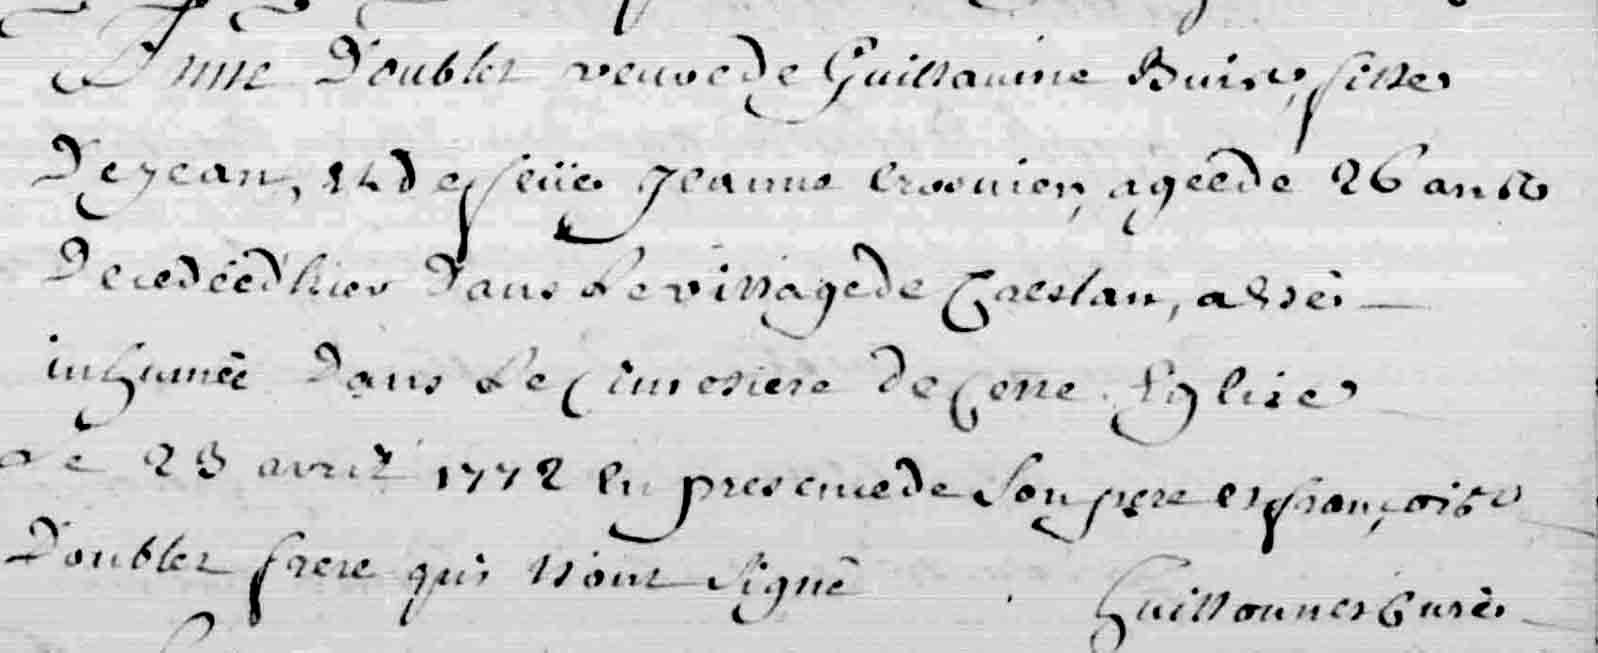 Anne Doublet veuve de Guillaume Buis, fille
De jean, et de feüe jeanne crosnier, agée de 26 ans
Decedée d'hier Dans Le village de Creslan, a été
inhumée Dans Le Cimetiere de Cette Eglise
Le 23 avril 1772 En presence de Son pere et françois
Doublet frere qui n'ont Signé Guillonnet Curé